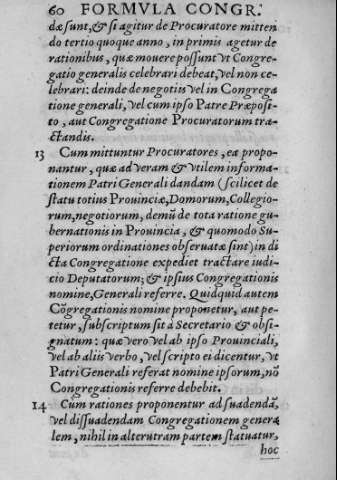 60 FORMVLA CONGR.
dæ sunt, & si agitur de Procuratore mitten
do tertio quoque anno, in primis agetur de
rationibus, quæ mouere possunt vt Congre-
gatio generalis celebrari debeat, vel non ce-
lebrari: deinde de negotijs vel in Congrega
tione generali, vel cum ipso Patre Præposi-
to, aut Congregatione Procuratorum tra-
ctandis.
13 Cum mittuntur Procuratores, ea propo-
nantur, quæ ad veram & vtilem informa-
tionem Patri Generali dandam (scilicet de
statu totius Prouinciæ, Domorum, Collegio-
rum, negotiorum, demũ de tota ratione gu-
bernationis in Prouincia, & quomodo Su-
periorum ordinationes obseruatæ sint) in di
cta Congregatione expediet tractare iudi-
cio Deputatorum; & ipsius Congregationis
nomine, Generali referre. Quidquid autem
Cõgregationis nomine proponetur, aut pe-
tetur, subscriptum sit à Secretario & obsi-
gnatum: quæ vero vel ab ipso Prouinciali,
vel ab aliis verbo, vel scripto ei dicentur, vt
Patri Generali referat nomine ipsorum, nõ
Congregationis referre debebit.
14 Cum rationes proponentur ad suadendã,
vel dissuadendam Congregationem genera
lem, nihil in alterutram partem statuatur,
hoc